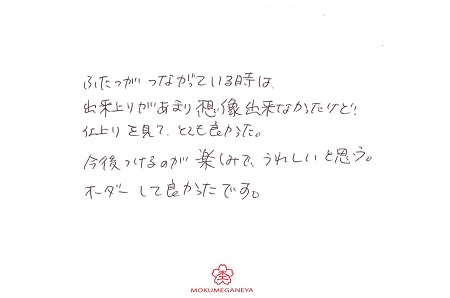 ふたつが つながっている時は、
出来上りがあまり想像出来なかったけど!
仕上りを見て、とても良かった。
今後つけるのが楽しみで、うれしいと思う。
オーダーして良かったです。
MOKUMEGANEYA